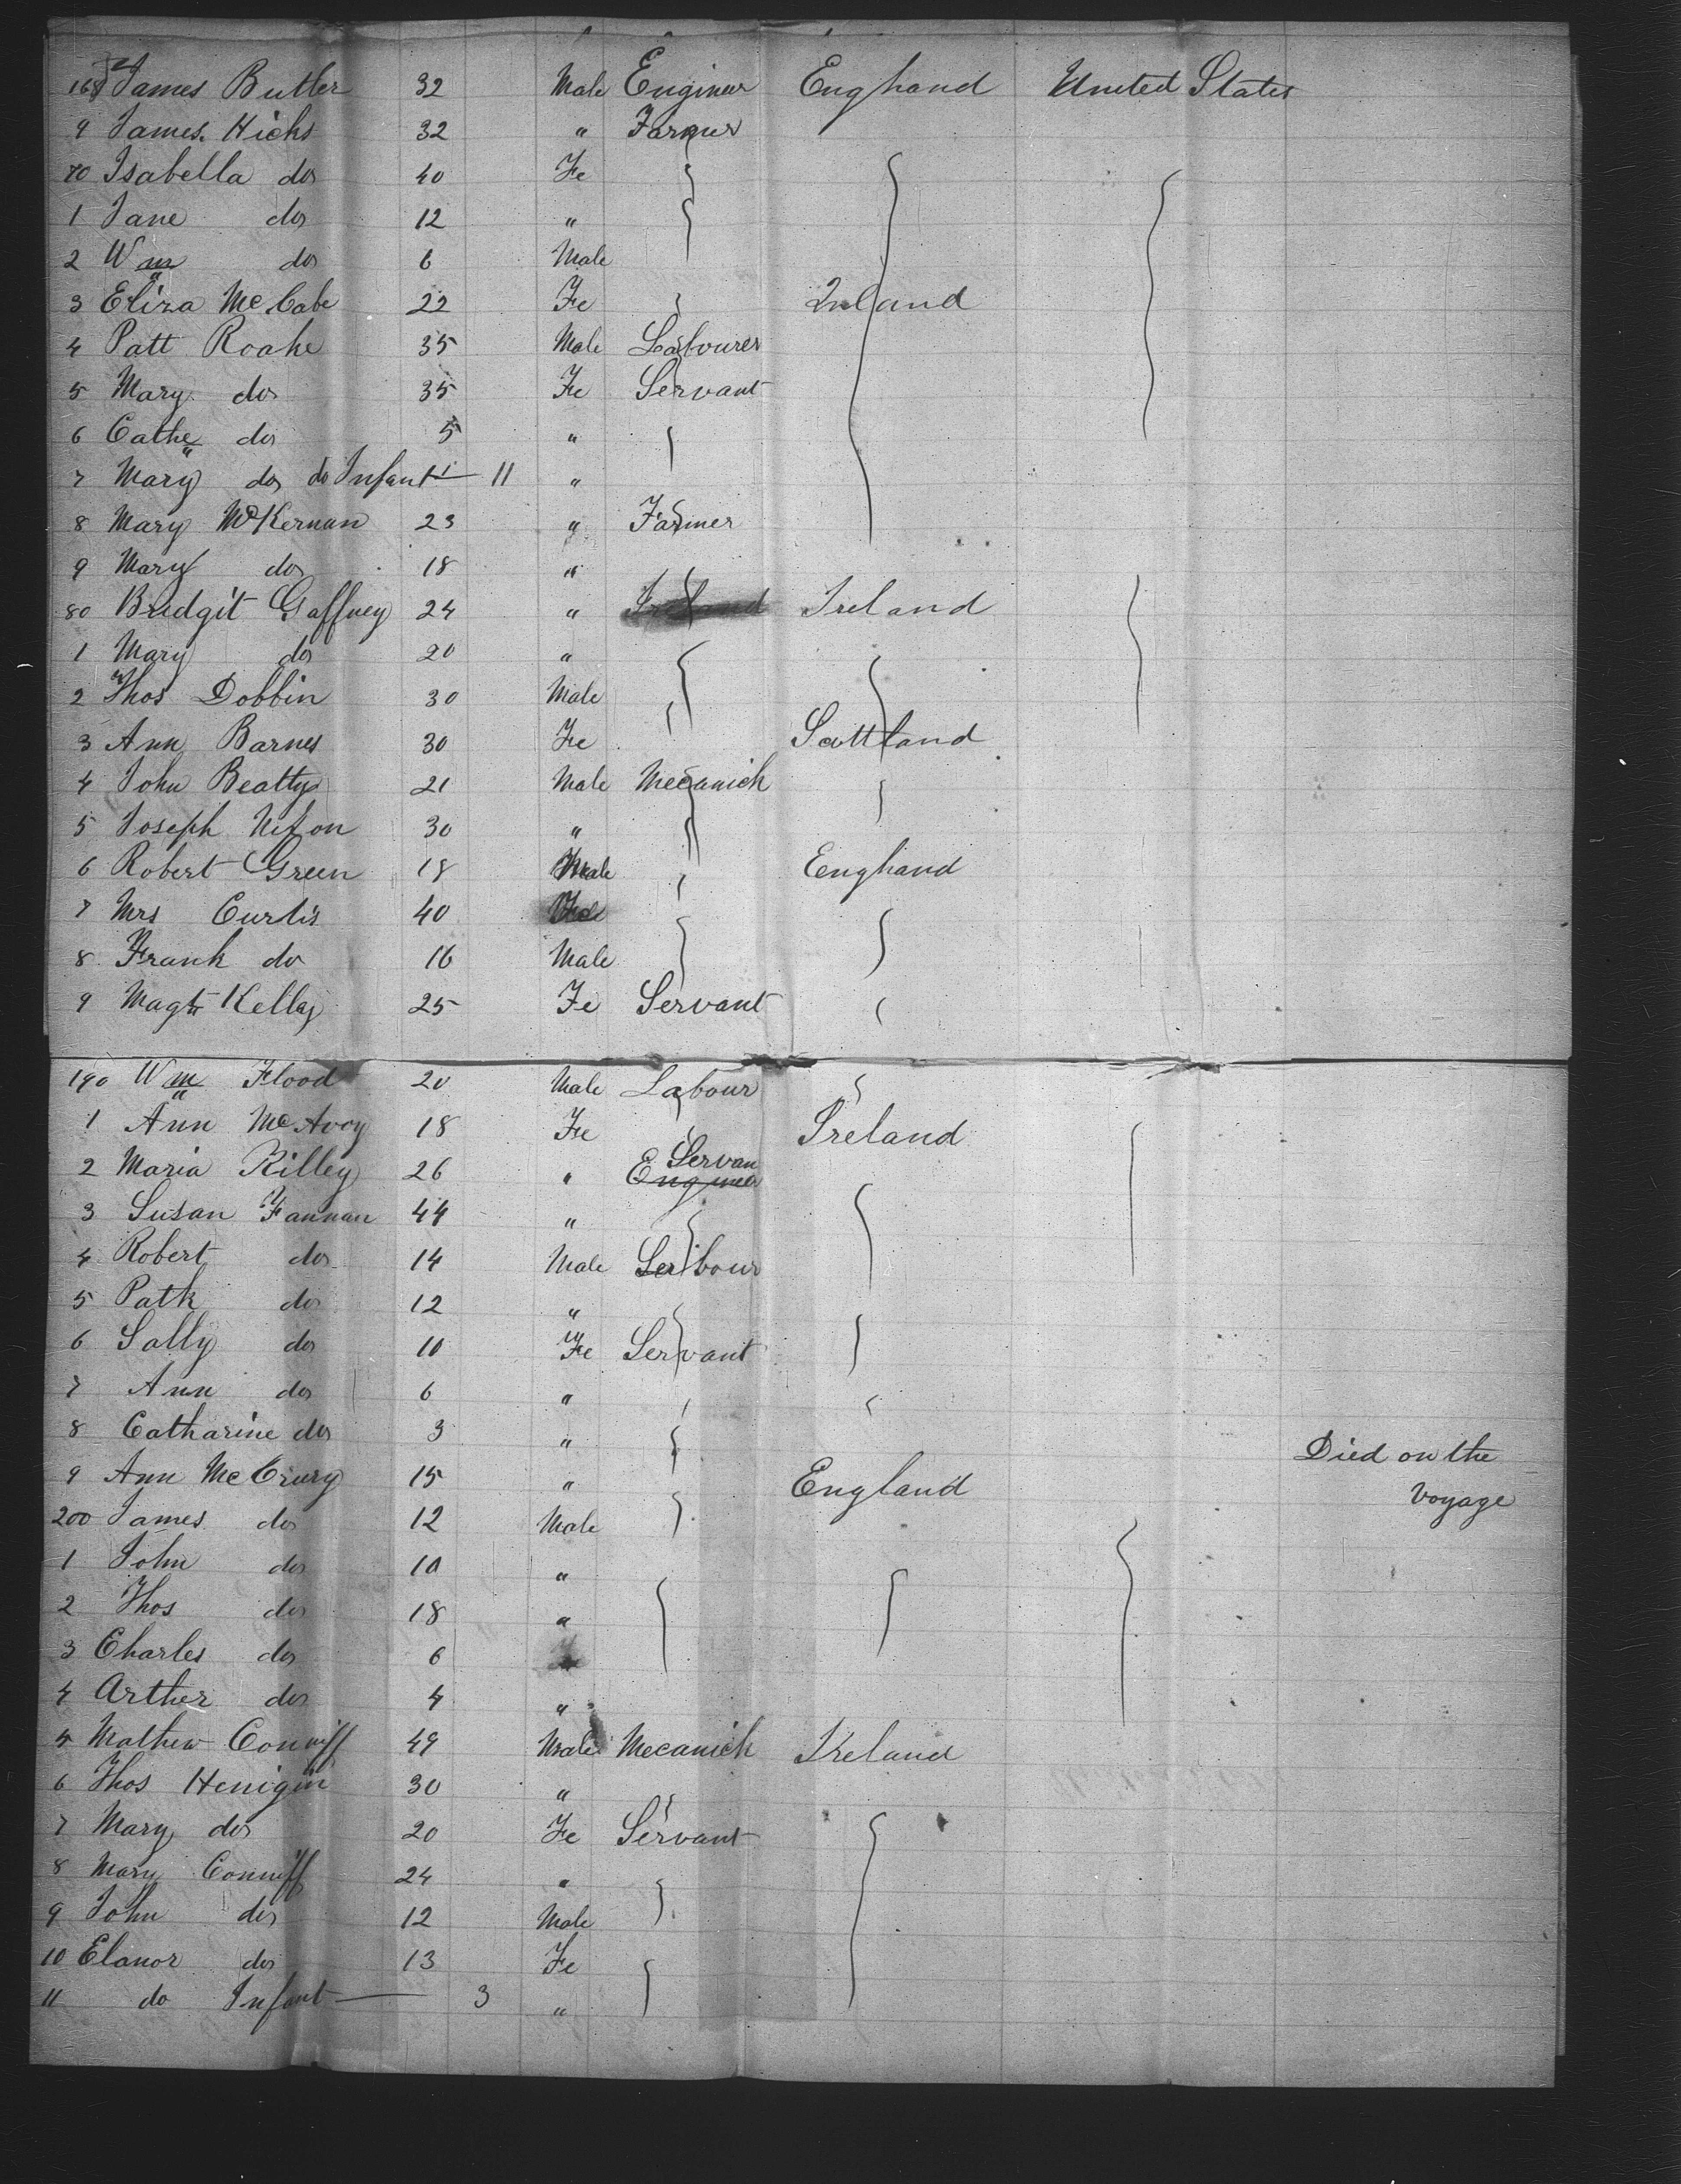 168 James Butler 32 Male Engineer Enghand United States
9 James. Hicks 32 " Farmer
70 Isabella do 40 Fe
1 Jane do 12 "
2 Wm do 6 Male
3 Eliza McCabe 22 Fe Ireland
4 Patt Roake 35 Male Labourer
5 Mary do 35 Fe Servant
6 Cathe do 5 "
7 Mary do do Infant 11 "
8 Mary McKernan 23 " Farmer
9 Mary do 18 "
80 Bridgit Gaffney 24 " Ireland Ireland
1 Mary do 20 "
2 Thos Dobbin 30 Male
3 Ann Barnes 30 Fe Scottland
4 John Beatty 21 Male Mecanick
5 Joseph 30 "
6 Robert Green 18 Male Enghand
7 Mrs Curtis 40 Fe
8 Frank do 16 Male
9 Magt Kelley 25 Fe Servant
190 Wm Flood 20 Male Labour
1 Ann McAvoy 18 Fe Ireland
2 Maria Rilley 26 " Engineer Servan
3 Susan Fannan 44 "
4 Robert do 14 Male Labour
5 Patk do 12 "
6 Sally do 10 Fe Servant
7 Ann do 6 "
8 Catharine do 3 " Died on the
9 Ann McCrury 15 " England Voyage
200 James do 12 Male
1 John do 10 "
2 Thos do 18 "
3 Charles do 6
4 Arther do 4 "
5 Mathew Conniff 49 Male Mecanick Ireland
6 Thos Henigin 30 "
7 Mary do 20 Fe Servant
8 Mary Conniff 24 "
9 John do 12 Male
10 Elanor do 13 Fe
11 do Infant 3 "